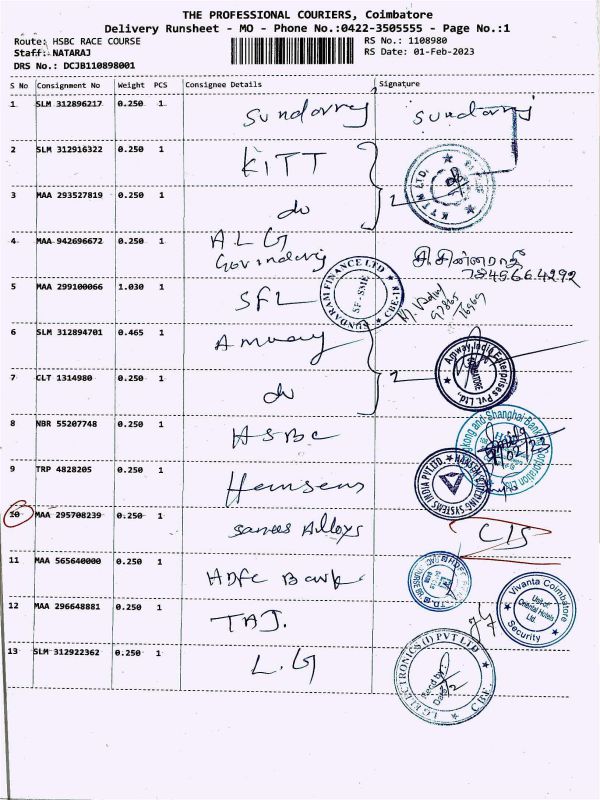 THE PROFESSIONAL COURIERS, Coimbatore
Delivery Runsheet - MO - Phone No.:0422-3505555 - Page No.:1
Route: HSBC RACE COURSE
RS No.: 1108980
Staff: NATARAJ
RS Date: 01-Feb-2023
DRS No.: DCJB110898001
S No Consignment No Weight PCS Consignee Details Signature
1 SLM 312896217 0.250 1 Sundarraj Sundarraj
2 SLM 312916322 0.250 1 KITT
KTTM LTD.
3 MAA 293527819 0.250 1 do 2
4 MAA 942696672 0.250 1 A.L.G
Govindaraj
சி.சின்னராசு
7849664292
5 MAA 299100066 1.030 1 SFL
SUNDARAM FINANCE LTD
SF-SME
CBE-18
6 SLM 312894701 0.465 1 Amway
Amway India Enterprises Pvt. Ltd.
COIMBATORE
7 CLT 1314980 0.250 1 do 2
8 NBR 55207748 0.250 1 HSBC
9 TRP 4828205 0.250 1 Hemsens
INDIA PVT.LTD.
10 MAA 295708239 0.250 1 sanees Alloys C/S
11 MAA 565640000 0.250 1 HDFC Bank
12 MAA 296648881 0.250 1 TAJ.
Vivanta Coimbatore
Unit of
Oriental Hotels
Ltd.
Security
13 SLM 312922362 0.250 1 L.G
LG ELECTRONICS (I) PVT LTD
CBE.
Recd by
Date